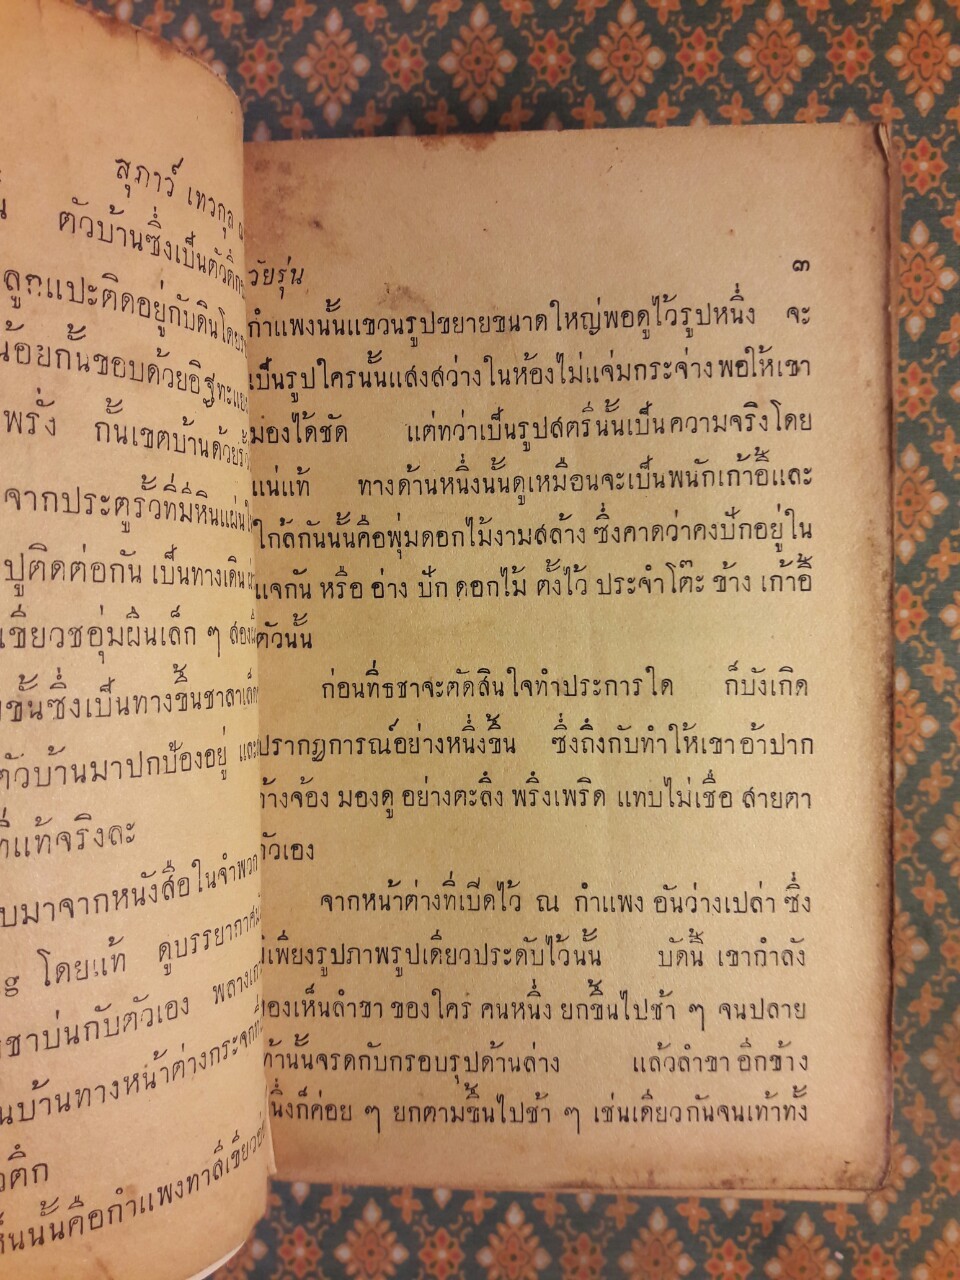 สุภาว์ เทวกุล
ตัวบ้านซึ่งเป็นตัวตึก
ลูกแปะติดอยู่กับดินโดย
น้อยกั้นขอบด้วยอิฐทะแยง
พรั่ง กั้นเขตบ้านด้วย
จากประตูรั้วที่มีหินแผ่น
ปูติดต่อกัน เป็นทางเดิน
เขียวชอุ่มผืนเล็ก ๆ สอง
ขั้นซึ่งเป็นทางขึ้นชาลาเล็ก
ตัวบ้านมาปกป้องอยู่ และ
ที่แท้จริงละ
บมาจากหนังสือในจำพวก
โดยแท้ ดูบรรยากาศ
ชาบ่นกับตัวเอง พลาง
นบ้านทางหน้าต่างกระจก
ตึก
ห็นนั้นคือกำแพงทาสีเขียว
วัยรุ่น ๓
กำแพงนั้นแขวนรูปขยายขนาดใหญ่พอดูไว้รูปหนึ่ง จะ
เป็นรูปใครนั้นแสงสว่างในห้องไม่แจ่มกระจ่างพอให้เขา
มองได้ชัด แต่ทว่าเป็นรูปสตรีนั้นเป็นความจริงโดย
แน่แท้ ทางด้านหนึ่งนั้นดูเหมือนจะเป็นพนักเก้าอี้และ
ใกล้กันนั้นคือพุ่มดอกไม้งามสล้าง ซึ่งคาดว่าคงปักอยู่ใน
แจกัน หรือ อ่าง ปัก ดอกไม้ ตั้งไว้ ประจำโต๊ะ ข้าง เก้าอี้
ตัวนั้น
ก่อนที่ธชาจะตัดสินใจทำประการใด ก็บังเกิด
ปรากฏการณ์อย่างหนึ่งขึ้น ซึ่งถึงกับทำให้เขาอ้าปาก
ค้างจ้อง มองดู อย่างตะลึง พรึงเพริด แทบไม่เชื่อ สายตา
ตัวเอง
จากหน้าต่างที่เปิดไว้ ณ กำแพง อันว่างเปล่า ซึ่ง
มีเพียงรูปภาพรูปเดียวประดับไว้นั้น บัดนี้ เขากำลัง
มองเห็นลำขา ของใคร คนหนึ่ง ยกขึ้นไปช้า ๆ จนปลาย
เท้านั้นจรดกับกรอบรูปด้านล่าง แล้วลำขา อีกข้าง
หนึ่งก็ค่อย ๆ ยกตามขึ้นไปช้า ๆ เช่นเดียวกันจนเท้าทั้ง